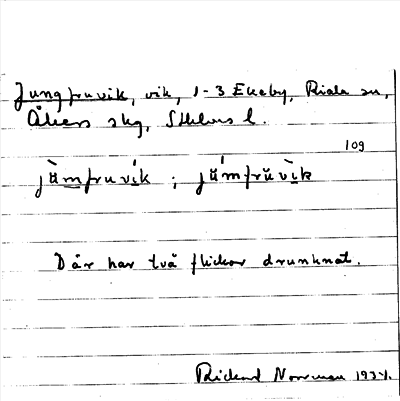 Jungfruvik, vik, 1-3 Ekeby, Riala sn,
Åkers skg, Sthlms l.
109
jàmfruvík ; já́mfrŭvìk
Där har två flickor drunknat.
Rickard Norrman 1934.